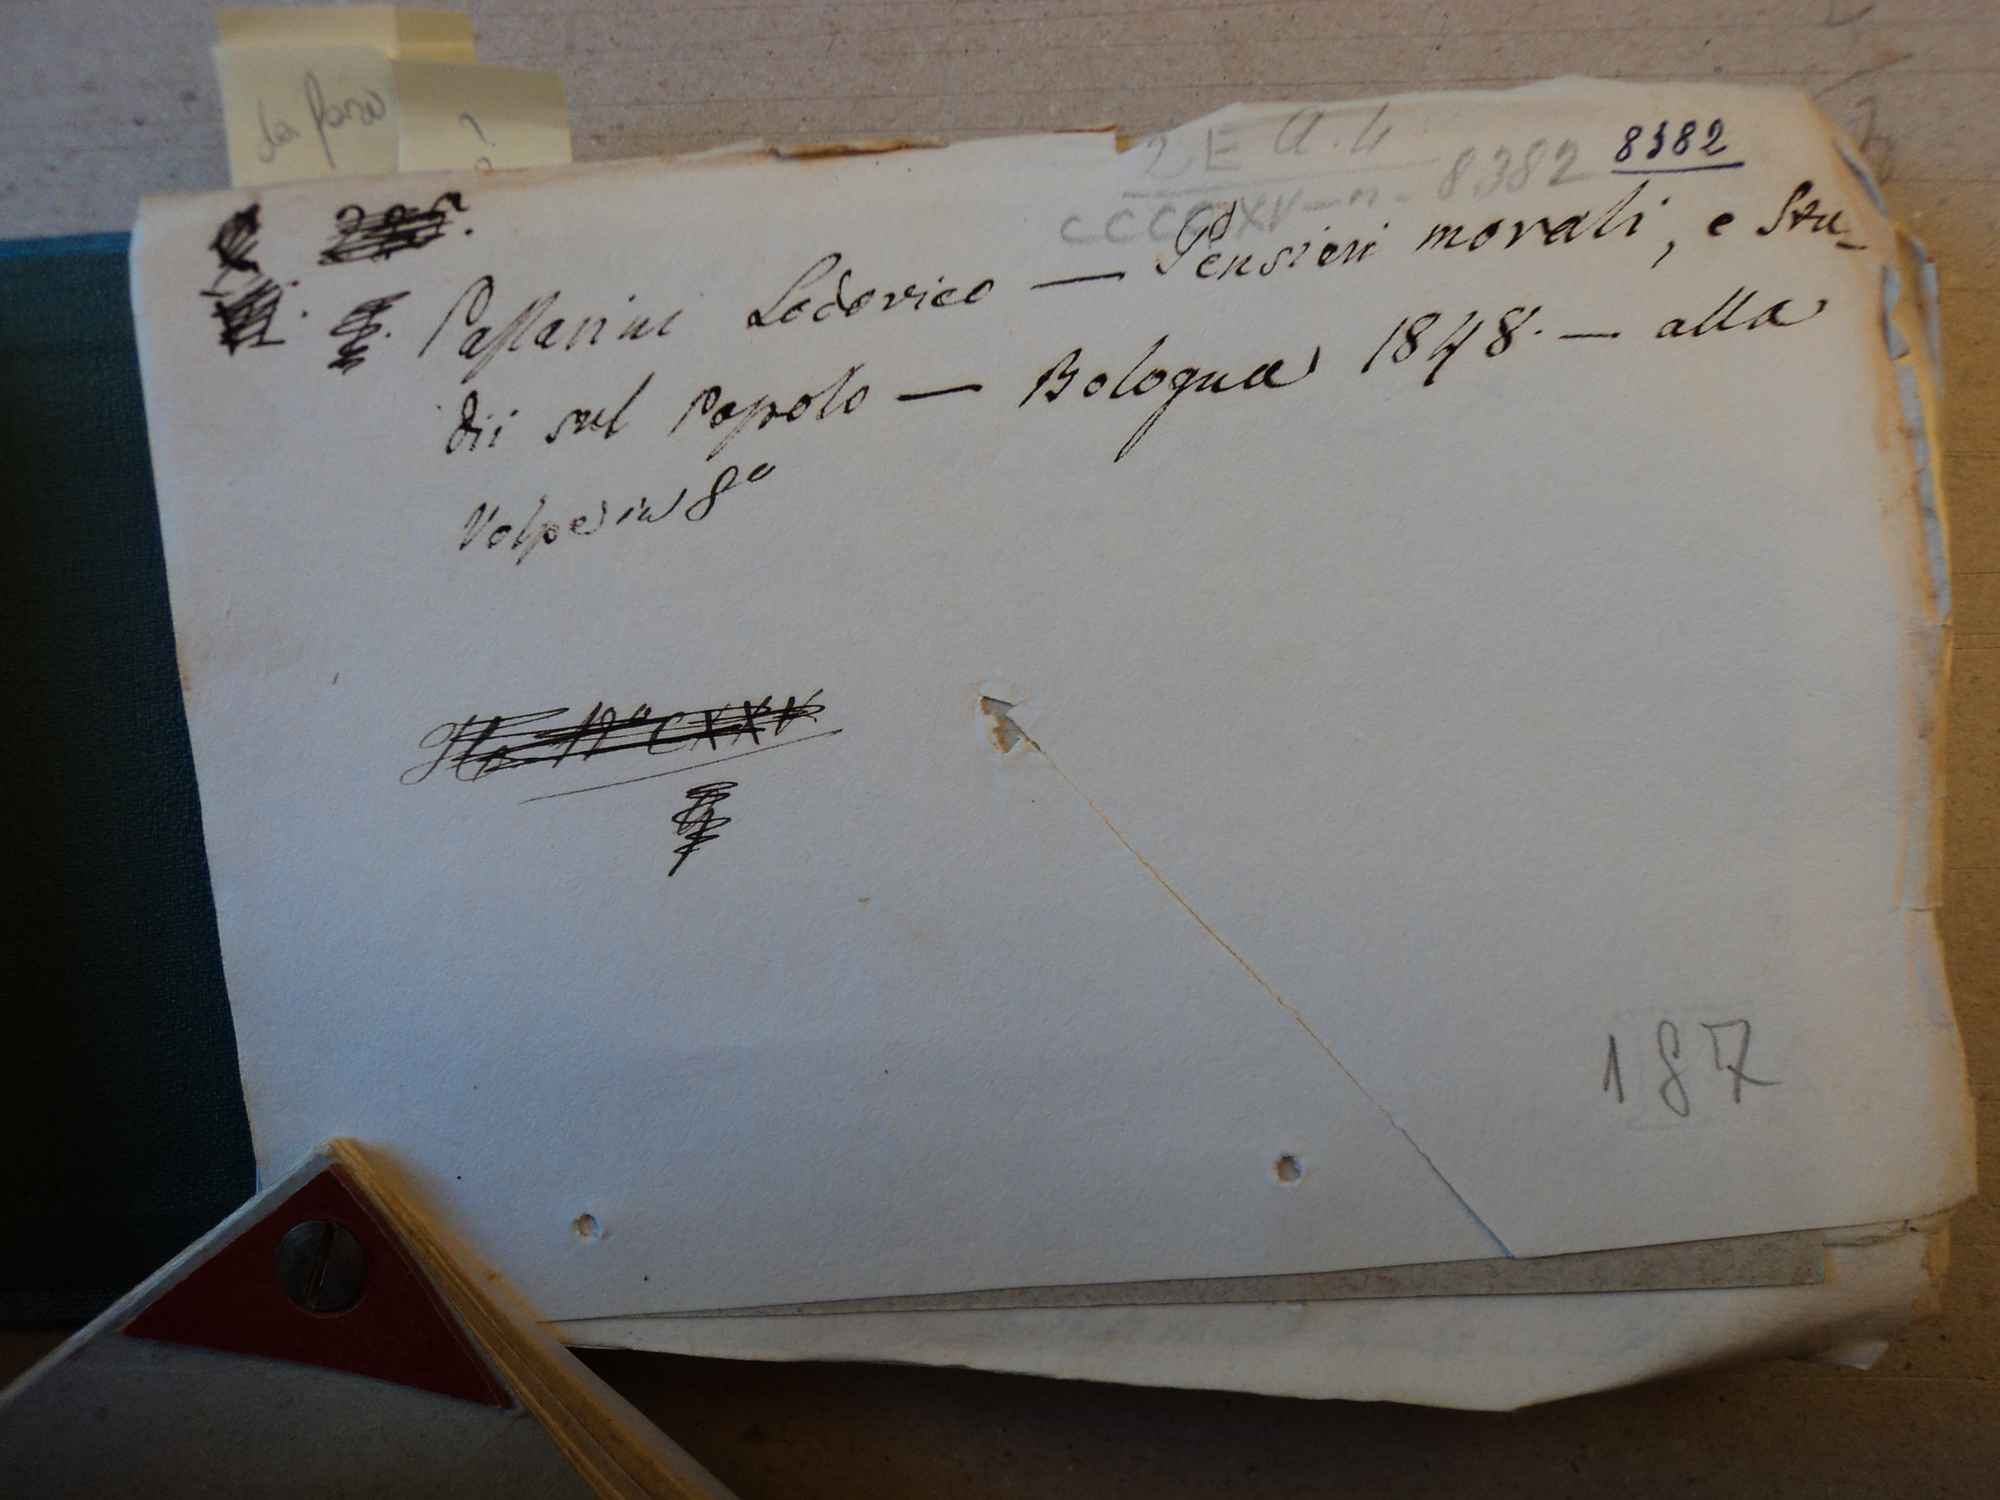 8382
2 E A. 4
CCCCXV — n. 8382
Passarini Lodovico — Pensieri morali, e Stu_
dii sul Popolo — Bologna 1848. — alla
Volpe in 8º
Nº CXXV
187
?